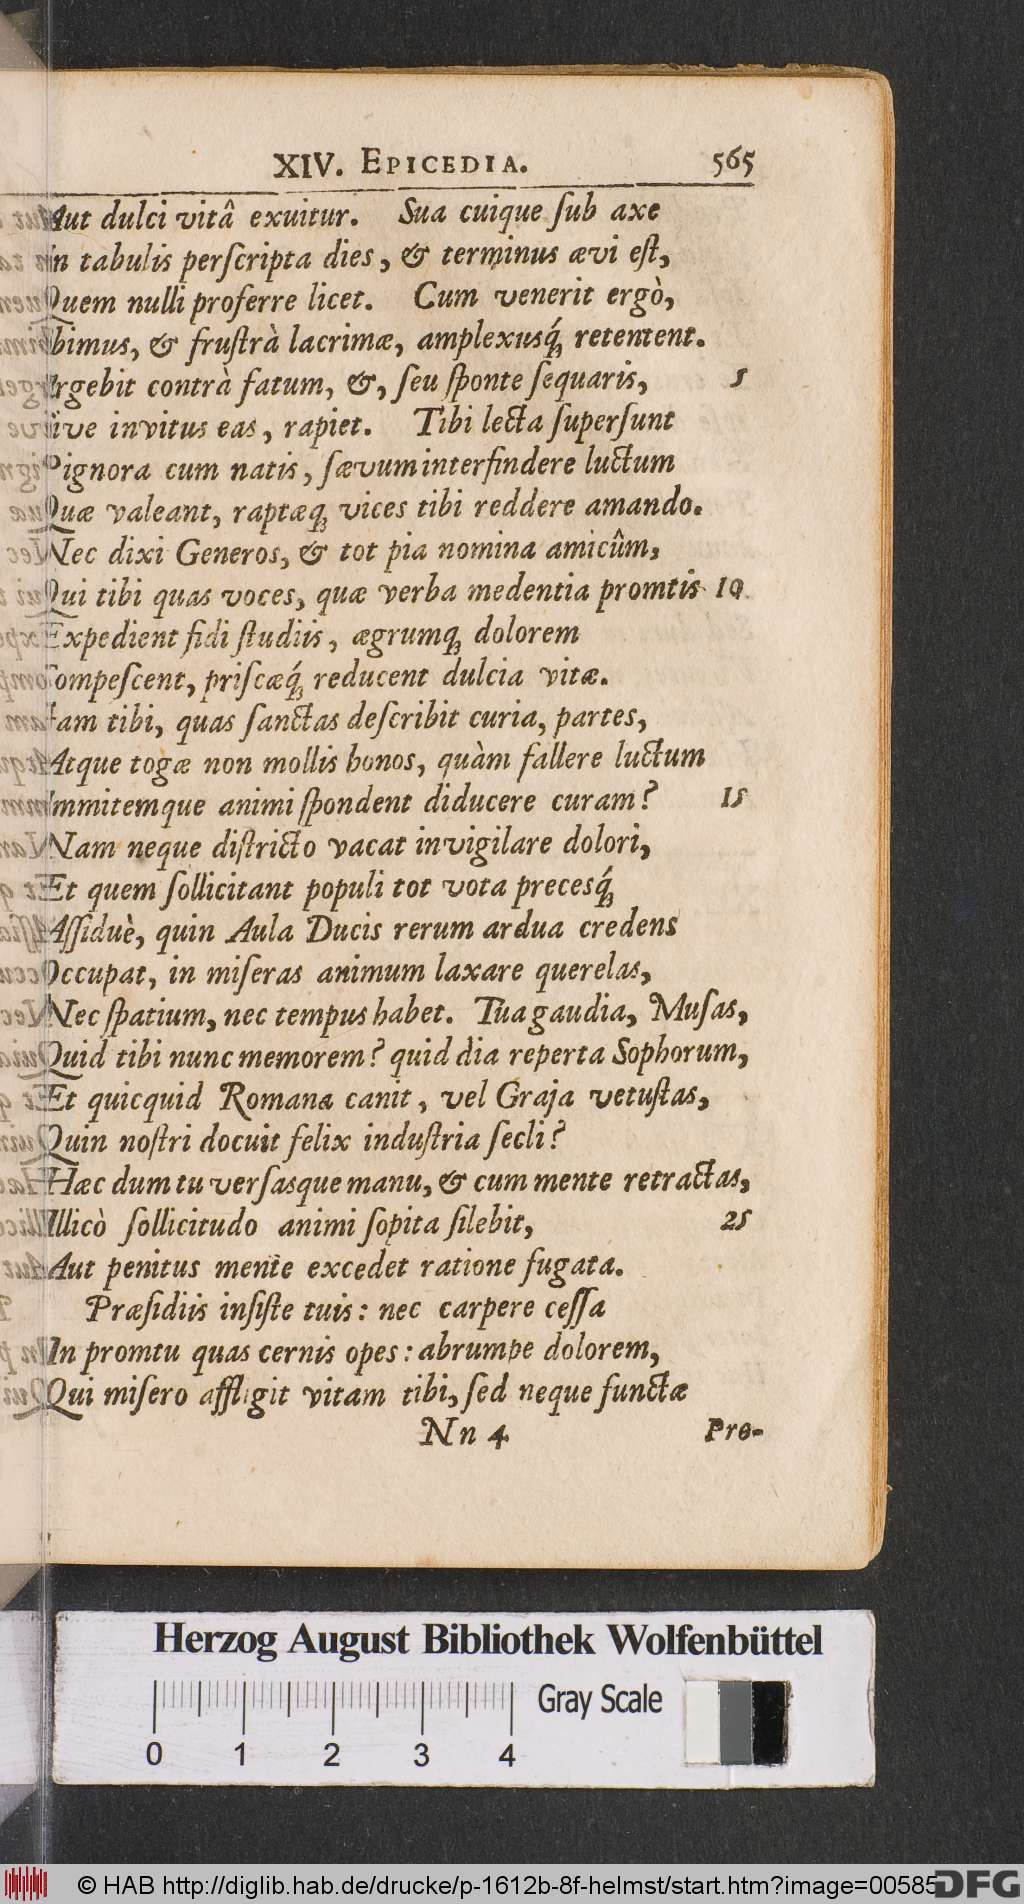 XIV. EPICEDIA. 565
Aut dulci vitâ exuitur. Sua cuique ſub axe
In tabulis perſcripta dies, & terminus ævi eſt,
Quem nulli proferre licet. Cum venerit ergò,
Ibimus, & fruſtrà lacrimæ, amplexusq́; retentent.
Urgebit contrà fatum, &, ſeu ſponte ſequaris, 5
Sive invitus eas, rapiet. Tibi lecta ſuperſunt
Pignora cum natis, ſævum interfindere luctum
Quæ valeant, raptæq; vices tibi reddere amando.
Nec dixi Generos, & tot pia nomina amicûm,
Qui tibi quas voces, quæ verba medentia promtis 10
Expedient fidi ſtudiis, ægrumq; dolorem
Compeſcent, priſcæq́; reducent dulcia vitæ.
Jam tibi, quas ſanctas deſcribit curia, partes,
Atque togæ non mollis honos, quàm fallere luctum
Immitemque animi ſpondent diducere curam? 15
Nam neque diſtricto vacat invigilare dolori,
Et quem ſollicitant populi tot vota precesq́;
Aſſiduè, quin Aula Ducis rerum ardua credens
Occupat, in miſeras animum laxare querelas,
Nec ſpatium, nec tempus habet. Tua gaudia, Muſas,
Quid tibi nunc memorem? quid dia reperta Sophorum,
Et quicquid Romana canit, vel Graja vetuſtas,
Quin noſtri docuit felix induſtria ſecli?
Hæc dum tu verſasque manu, & cum mente retractas,
Illicò ſollicitudo animi ſopita ſilebit, 25
Aut penitus mente excedet ratione fugata.
Præſidiis inſiſte tuis: nec carpere ceſſa
In promtu quas cernis opes: abrumpe dolorem,
Qui miſero affligit vitam tibi, ſed neque functæ
Nn 4 Pro-
Herzog August Bibliothek Wolfenbüttel
Gray Scale
0 1 2 3 4
© HAB http://diglib.hab.de/drucke/p-1612b-8f-helmst/start.htm?image=00585
DFG